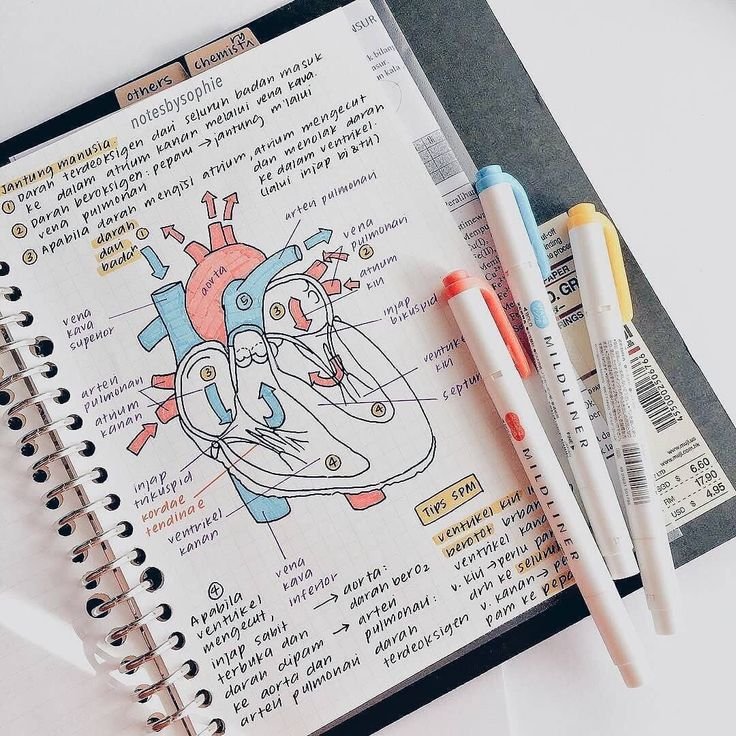 others
chemistry
notesbysophie
Jantung manusia.
① Darah terdeoksigen dari seluruh badan masuk
ke dalam atrium kanan melalui vena kava.
② Darah beroksigen: pepanu → jantung m'lalui
vena pulmonari
③ Apabila darah mengisi atrium, atrium mengecut
dan menolak darah
ke dalam ventrikel.
(lalui injap bi & tri)
darah
dari
badan
①
arten pulmonari
vena
pulmonari
②
atrium
kiri
injap
bikuspid
ventrikel
kiri
septum
aorta
⑤
③
③
④
④
vena
kava
superior
arteri
pulmonari
atrium
kanan
injap
trikuspid
kordae
tendinae
ventrikel
kanan
vena
kava
inferior
④
Apabila
ventrikel
mengecut,
injap sabit
terbuka dan
darah dipam
ke aorta dan
arteri pulmonari
→ aorta:
darah berO₂
→ arteri
pulmonari:
darah
terdeoksigen
TIPS SPM
ventrikel kiri
berotot
ventrikel
v. kiri → perlu
ke seluruh
v. kanan →
pam ke
MILDLINER
MILDLINER
MILDLINER
PAPER
6.60
RM 17.90
SGD $ 4.95
4550002506766